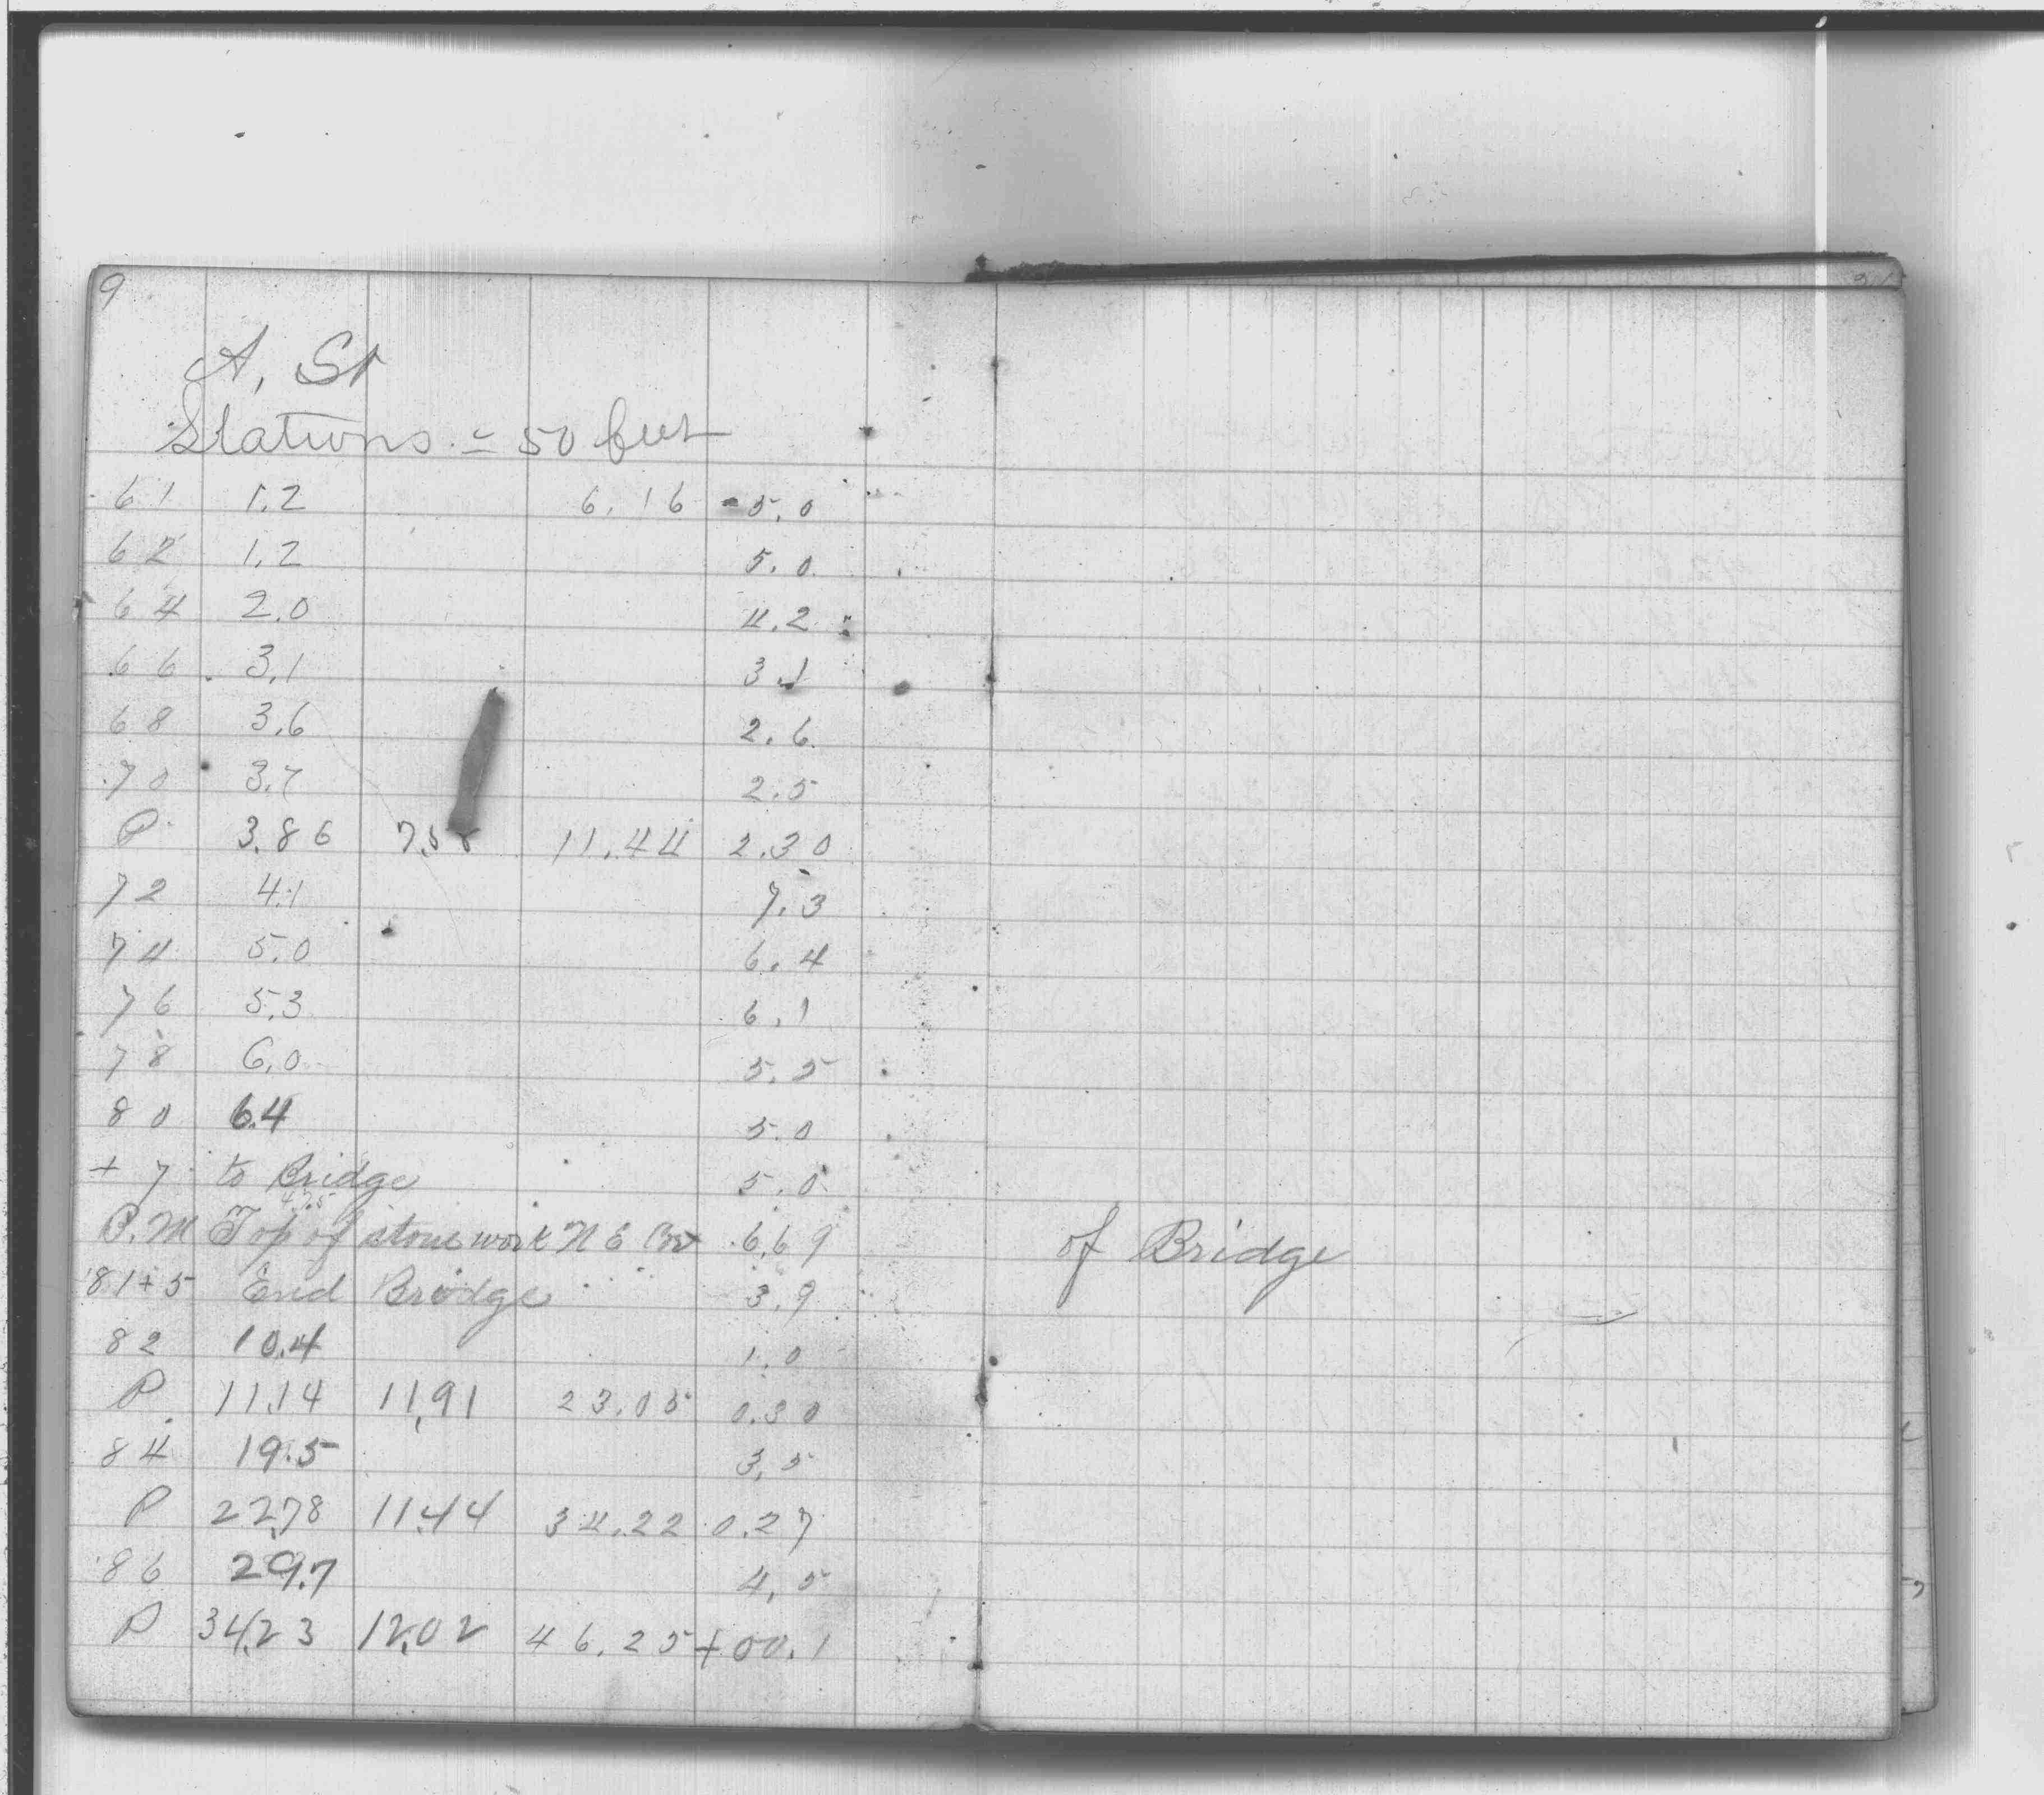 9
A, St
Stations = 50 feet
61 1.2 6.16 5.0
62 1.2 5.0
64 2.0 4.2
66 3.1 3.1
68 3.6 2.6
70 3.7 2.5
P 3.86 7.58 11.44 2.30
72 4.1 7.3
74 5.0 6.4
76 5.3 6.1
78 6.0 5.5
80 6.4 5.0
+ 7 to Bridge 5.0
4.75
B.M Top of stone work N E Cor 6.69 of Bridge
81+5 End Bridge 3.9
82 10.4 1.0
P 11.14 11.91 23.05 0.30
84 19.5 3.5
P 22.78 11.44 34.22 0.27
86 29.7 4.5
P 34.23 12.02 46.25 + 00.1